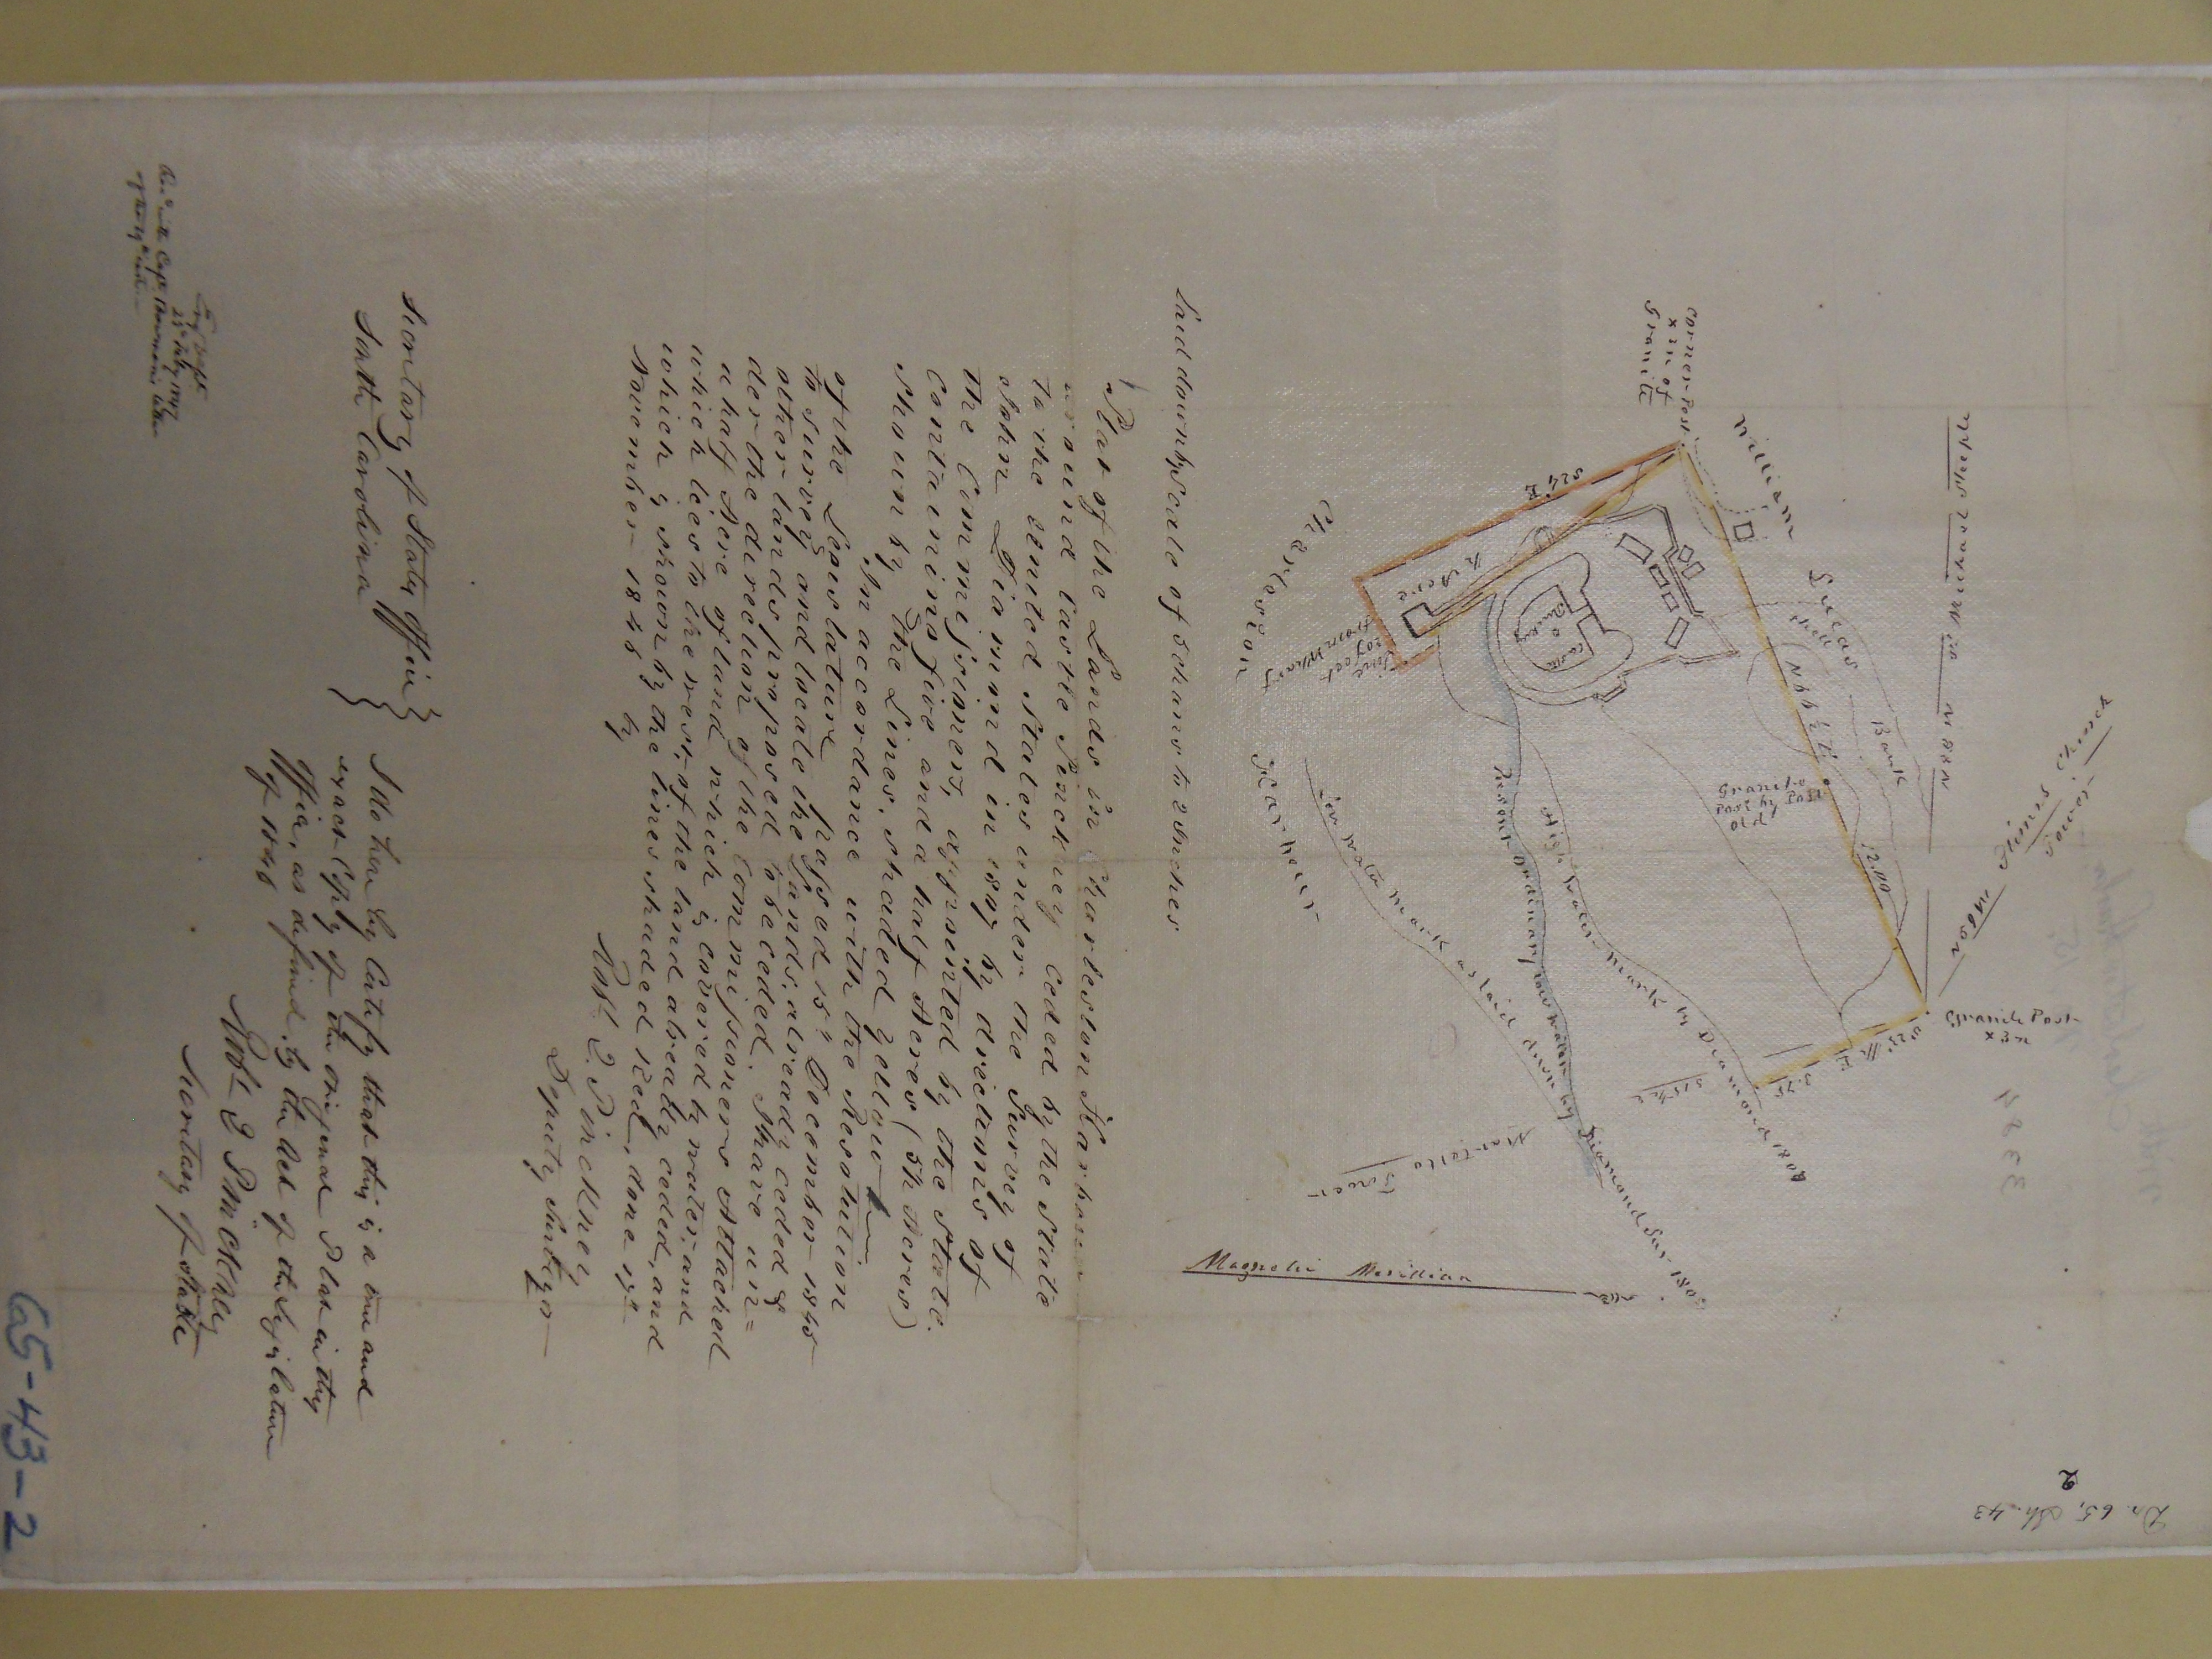 Dr. 65, Sh. 43
2
N 33 E
Magnetic Meridian
Martello
Tower
Granite Post
x 3 n
Stines Chmes
Tower
N 20 W
Bank
Lucas
Mill
William
Corner Post
x III of
Granite
Granite
Post by Post
Old
N 66 ½ E
12.00
S 25 ½ E
3.75
S 15 ½ E
S 25° E
½ Acre
Quarters
Castle
Line
20 feet
from Wharf
High Water Mark by Diamond 1807
Present Ordinary low water
low water mark as laid down by Diamond Sur 1807
Charleston
Harbour
Laid down by Scale of 5 Chains to 2 Inches
Plat of the Lands in Charleston Harbour
around Castle Pinckney ceded by the State
to the United States under the Survey of
John Diamond in 1807 by directions of
the Commissioners, appointed by the State.
Containing five and a half Acres (5½ Acres)
Shown by The Lines, shaded yellow
In accordance with the Resolution
of the Legislature passed 15th December 1845
to survey and locate the Lands, already ceded &
other lands proposed to be ceded, I have un=
der the direction of the Commissioners Attached
a half Acre of land which is covered by water, and
which lies to the west, of the land already ceded, and
which is shown by the lines shaded red, done 15th
November 1846 by
Robt. Q. Pinckney
Deputy Surveyor
Secretary of States Office }
South Carolina }
I do here by Certify that this is a true and
exact Copy of the original Plat in this
Office, as defined by the Act of the Legislature
of 1846
Robt Q Pinckney
Secretary of State
Eng Dept
Recd with Capt Bowman's letter
65-43-2